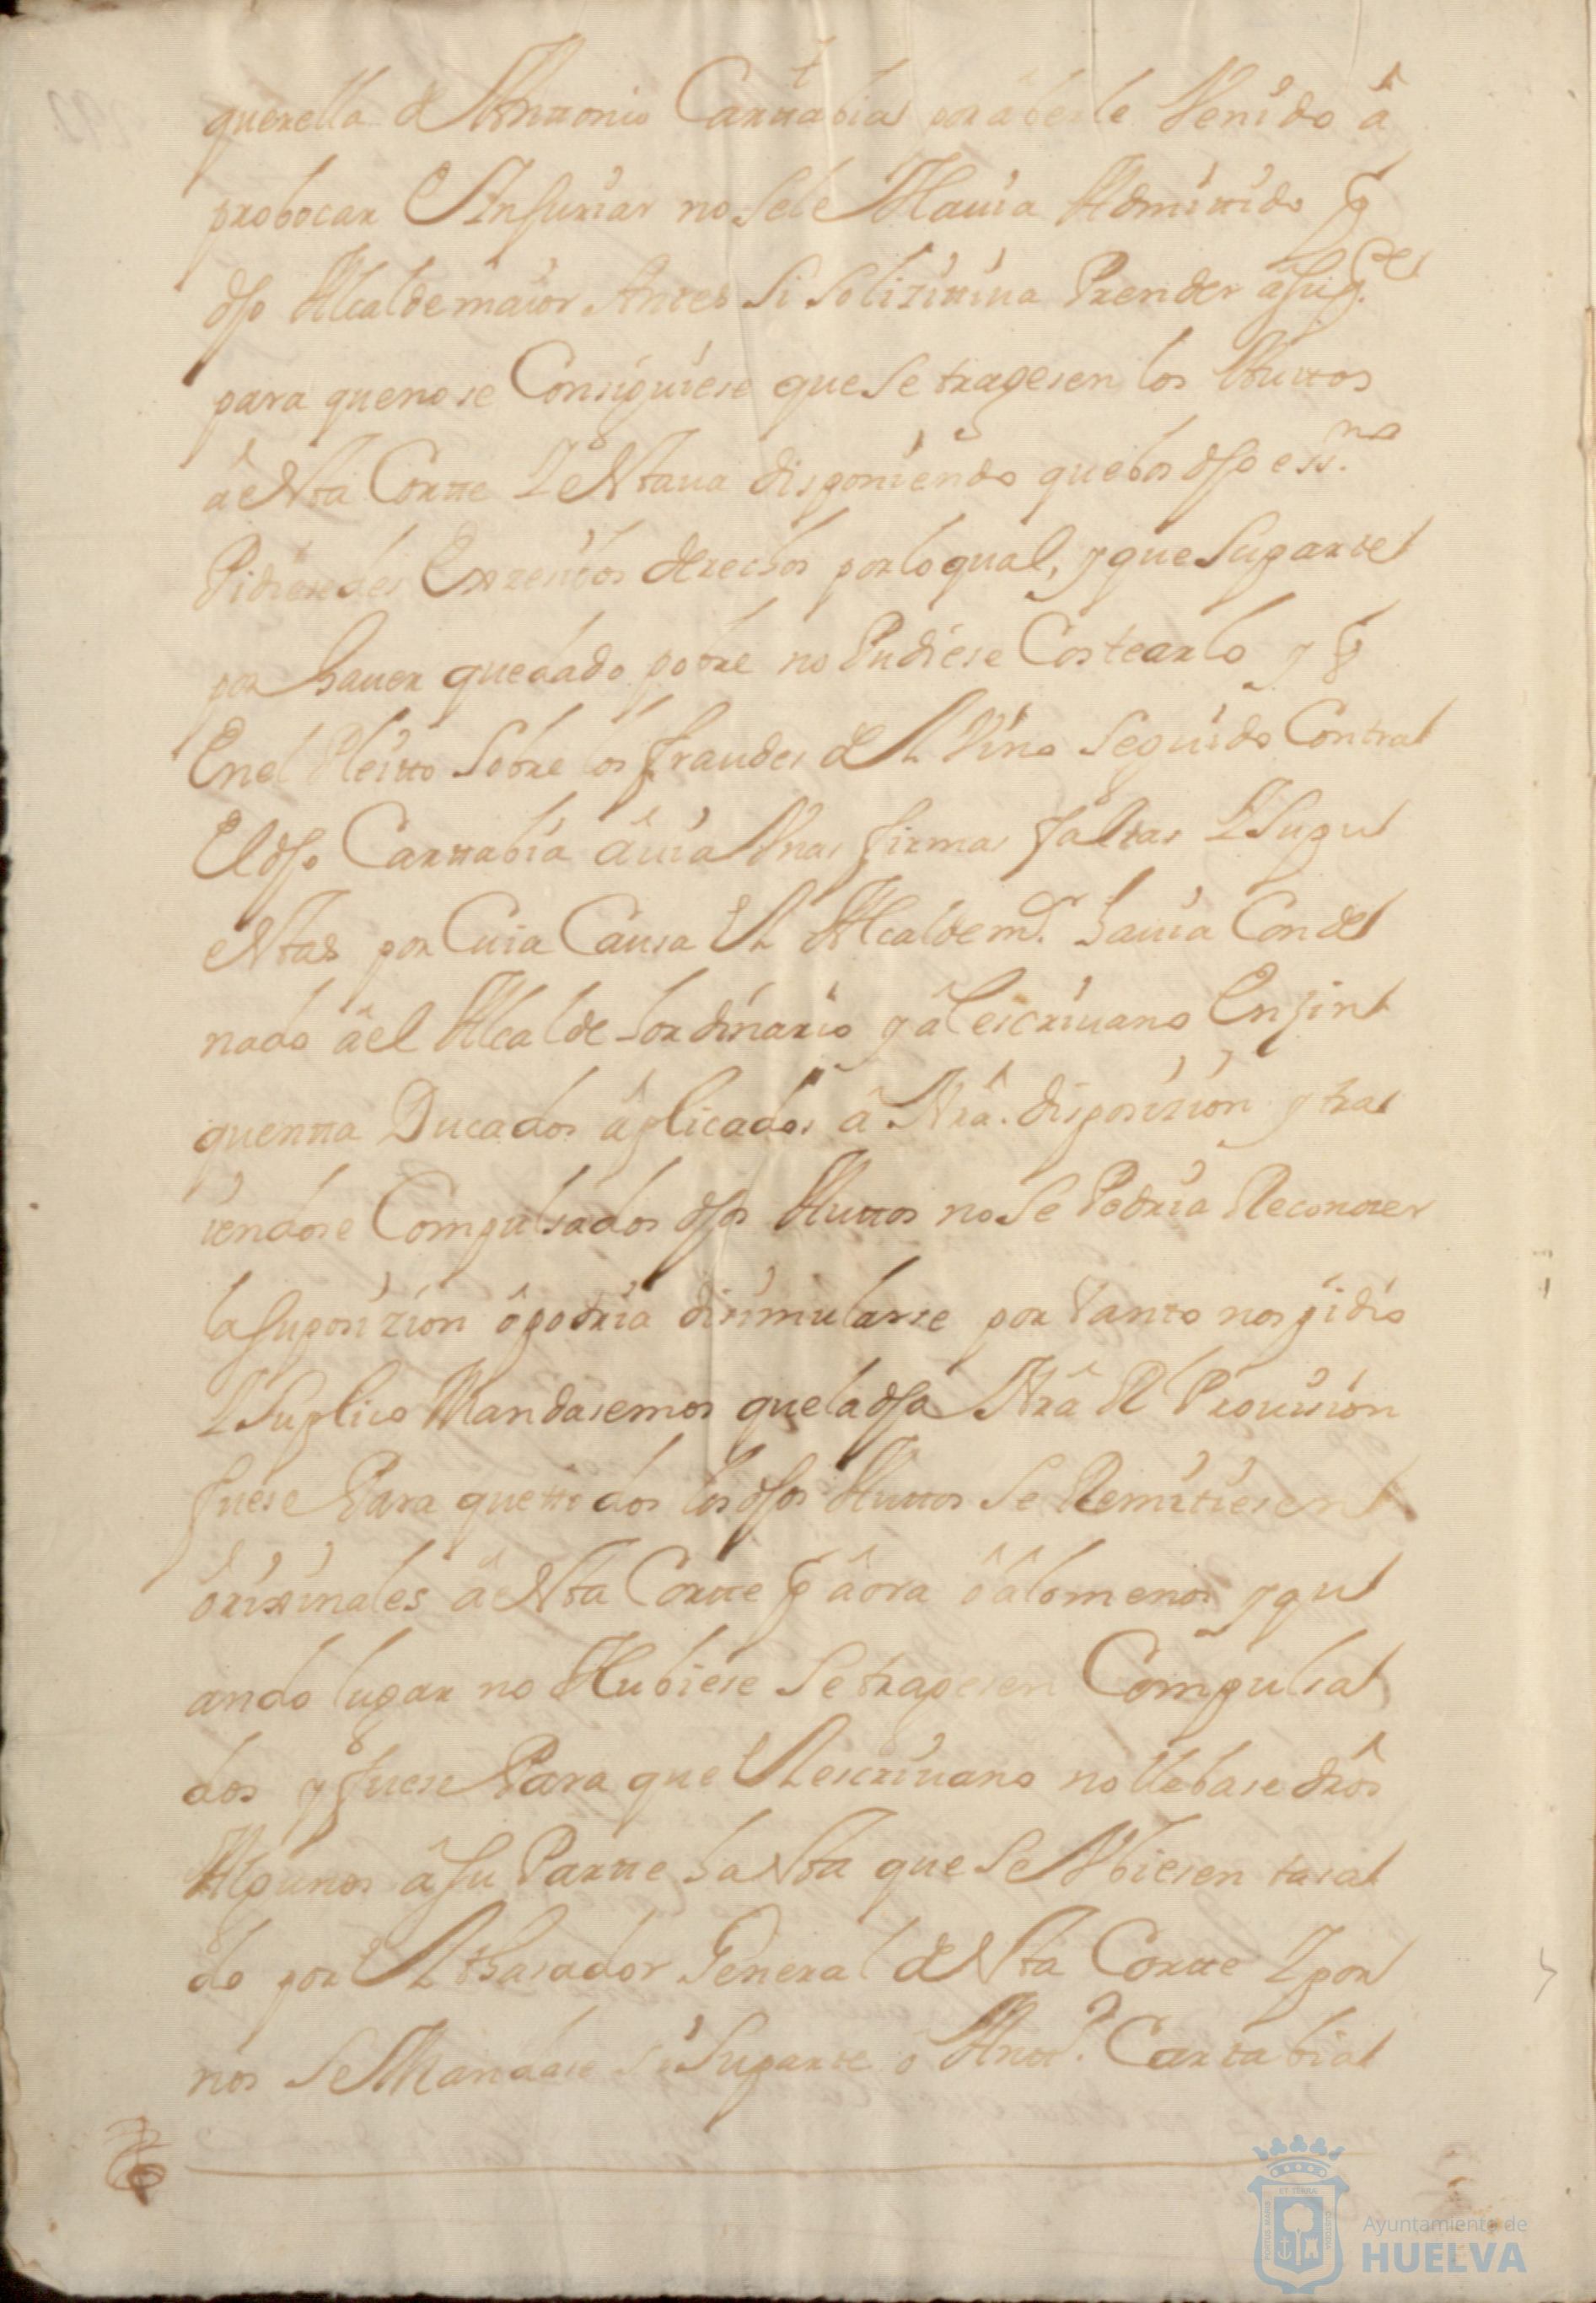 querella de Anttonio Carttabia por aberle Venido â
probocar E Injuriar no se le Hauia Admitido pr
dho Alcalde maior Antes si solizittaua Prender a su pte
para que no se Consiguiese que se tragesen los Auttos
â esta Cortte Y estaua disponiendo que los dhos essnos
Pidiesen los Exzesibos derechos por lo qual, y que su parte
por hauer quedado pobre no Pudiese Costearlo y pr
En el Pleitto sobre los fraudes del Vino seguido Contra
El dho Carttabia âuia Unas firmas falsas Y supu
estas por Cuia Causa el Alcalde mr. hauia Conde
nado âel Alcalde hordinario y âl escriuano En zin
quentta Ducados âplicados â Nra. disposizion y tra
iendose Compulsados dhos Auttos no se Podria Reconozer
la suposizion ô podria disimularse por tanto nos pidio
Y Suplico Mandasemos que la dha Nra Rl Prouision
fuese Para que ttodos los dhos Auttos se Remitiesen
ôrixinales â esta Cortte pr âora ô âlo menos y qu
ando lugar no Hubiese se tragesen Compulsa
dos y fuese Para que el escriuano no llebase dros
Algunos â su Partte hasta que se Vbiesen tasa
do por el thasador General de esta Cortte Y por
nos se Mandase si su parte ô Anto. Cartabia
Ayuntamiento de
HUELVA